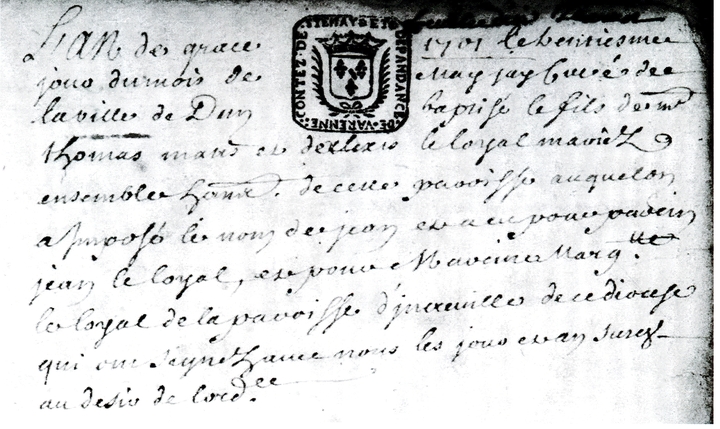 L'an de grace 1701 le huitiesme
jour du mois de May jay Curé de
la ville de Dun baptisé le fils de mre
thomas et de le loyal mariez
ensemble de cette paroisse auquel on
a Imposé le nom de jean et a eu pour parein
jean le loyal, et pour Mareine Marg.tte
le loyal de la paroisse d'jncreville de ce diocese
qui ont signez avec nous les jour et an susd
au desir de lord.ce
CONTEZ DE STENAY ET DEPANDANCE DE VARENNE